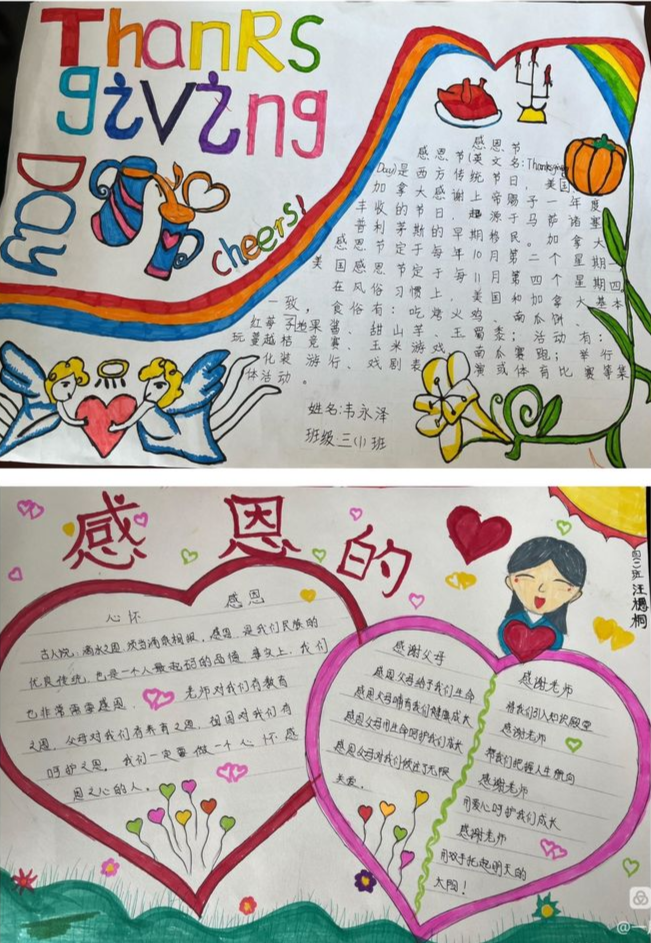 Thanks
giving
Day
cheers!
感恩节
感恩节(英文名:Thanksgiving
Day)是西方传统节日,美国
加拿大感谢上帝赐予一年度
丰收的节日,起源于马萨诸塞
普利茅斯的早期移民。加拿大
感恩节定于每年10月第二个星期一
美国感恩节定于每11月第四个星期四
在风俗习惯上,美国和加拿大基本
一致。食俗有:吃烤火鸡、南瓜饼、
红莓子果酱、甜山芋、玉蜀黍;活动有:
玩蔓越桔竞赛、玉米游戏、南瓜赛跑;举行
化装游行、戏剧表 赛或体有比赛等集
体活动。
姓名:韦永泽
班级:三(1)班
感恩的
四(二)班 汪 桐
心怀 感恩
古人说:滴水之恩,须当涌泉相报,感恩,是我们民族的
优良传统,也是一个人最起码的品德,事实上,我们
也非常需要感恩. 老师对我们有教育
之恩,父母对我们有养育之恩,祖国对我们有
呵护之恩。我们一定要做一个心怀感
恩之心的人。
感谢父母
感恩父母给予我们生命
感恩父母哺育我们健康成长
感恩父母用生命呵护我们成长
感恩父母对我们倾注了无限
关爱.
感谢老师
将我们引入知识殿堂
感谢老师
帮我们把握人生航向
感谢老师
用爱心呵护我们成长
感谢老师
用双手托起明天的
太阳!